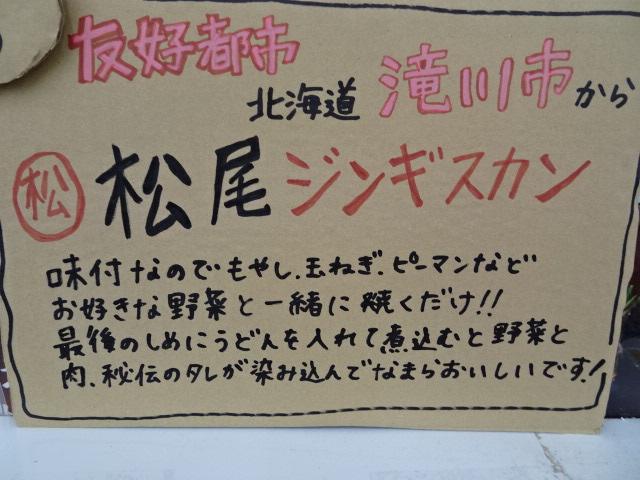 友好都市
北海道 滝川市から
松 松尾ジンギスカン
味付なのでもやし、玉ねぎ、ピーマンなど
お好きな野菜と一緒に焼くだけ!!
最後のしめにうどんを入れて煮込むと野菜と
肉、秘伝のタレが染み込んでなまらおいしいです!